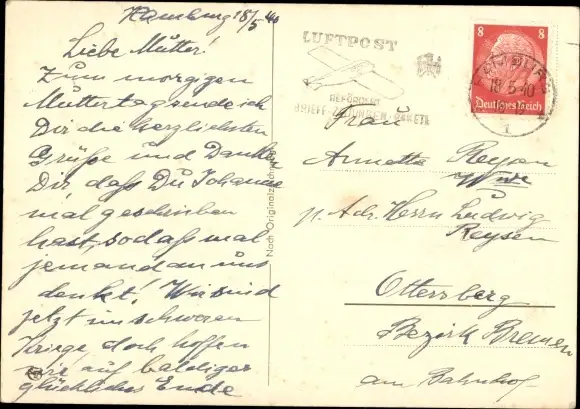 Hamburg 18/5 40
Liebe Mutter!
Zum morgigen
Muttertag sende ich
Dir die herzlichsten
Grüße und Danke
Dir, daß Du Johanne
mal geschrieben
hast, sodaß mal
jemand an uns
denkt! Wir sind
jetzt im schweren
Kriege doch hoffen
wir auf baldiges
glückliches Ende
Nach Originalzeichnung
LUFTPOST
BEFÖRDERT
BRIEFE ZEITUNGEN PAKETE
8 8
Deutsches Reich
HAMBURG
18.5.40
1
Frau
Annette Reysen
Wwe
p. Adr. Herrn Ludwig
Reysen
Ottersberg
Bezirk Bremen
am Bahnhof